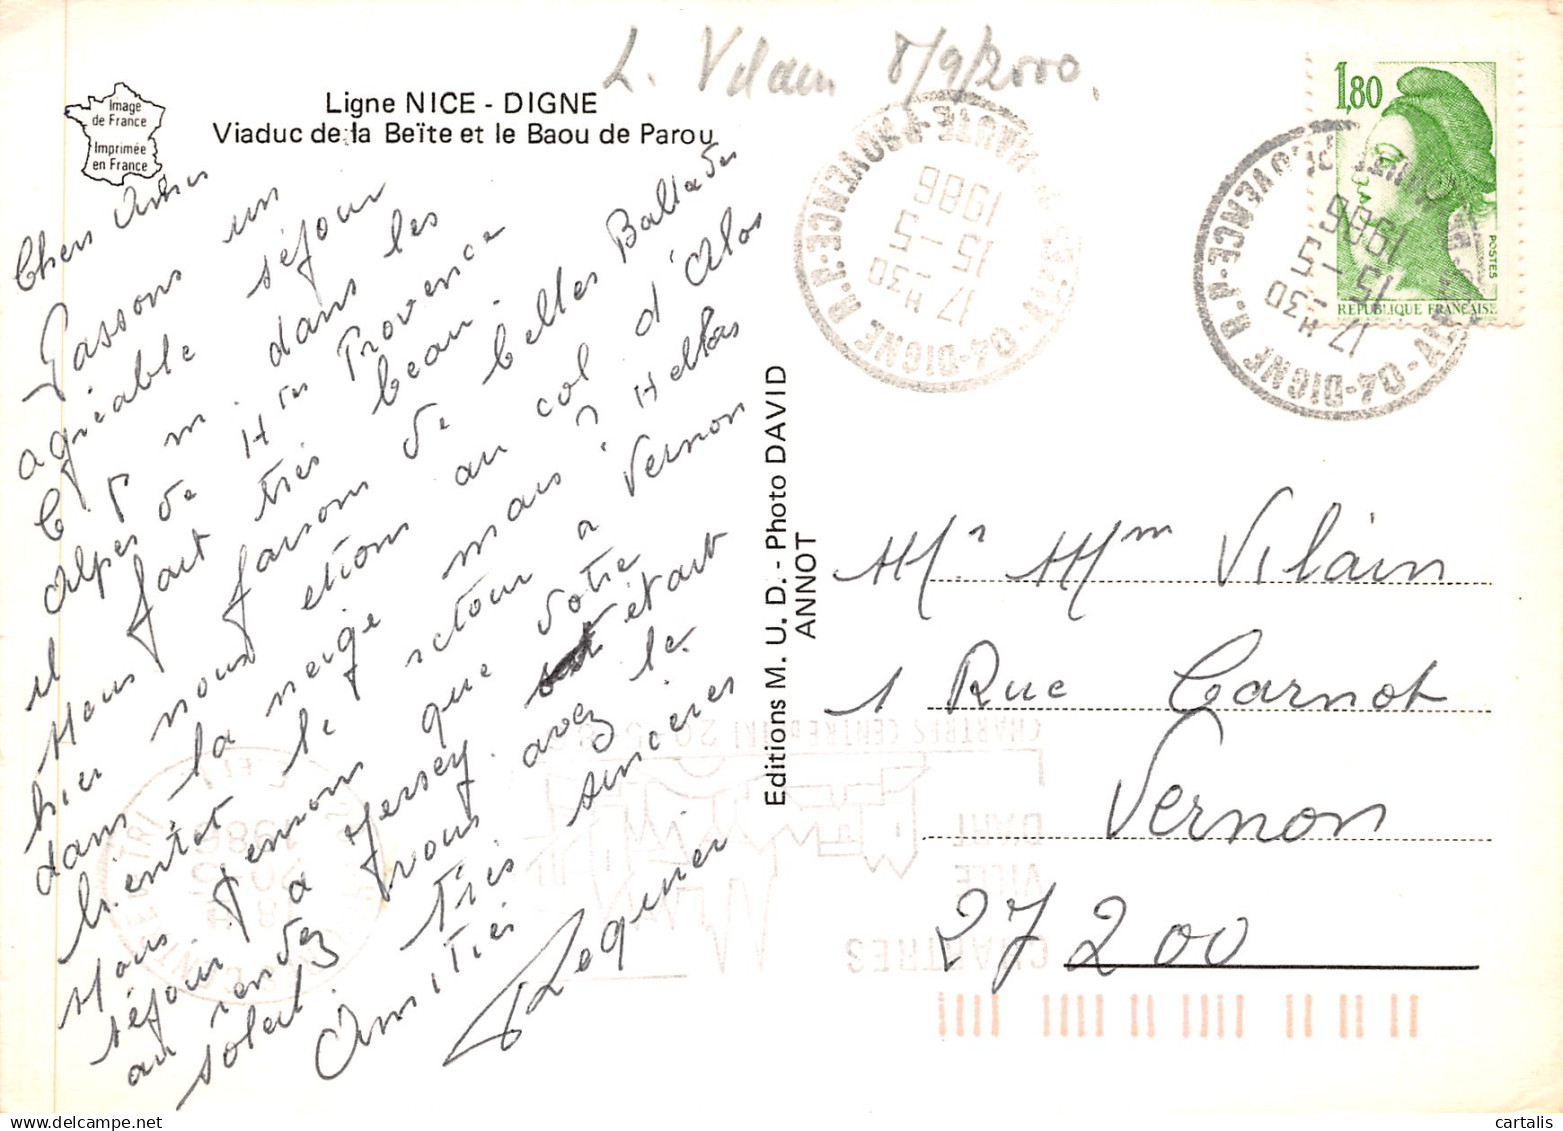 L. Vilain 8/9/2000.
Image
de France
Imprimée
en France
Ligne NICE - DIGNE
Viaduc de la Beïte et le Baou de Parou
Chers Amis
Passons un
agréable séjour
dans les
Alpes de Hte Provence
il fait très beau.
Nous faisons de belles Ballades
hier nous étions au col d'Allos
dans la neige mais ? Hellas
bientot le retour a Vernon
Nous pensons que votre
séjour a Jersey étant
au rendez vous avez le
soleil. Très sincères
Amitiés
Editions M. U. D. - Photo DAVID
ANNOT
1,80
POSTES
REPUBLIQUE FRANÇAISE
17 H30
15 -5
1986
04-DIGNE R.P.
17 H30
15 -5
1986
04-DIGNE R.P.
Mr Mm Vilain
1 Rue Carnot
Vernon
27200
CHARTRES
VILLE
D'ART